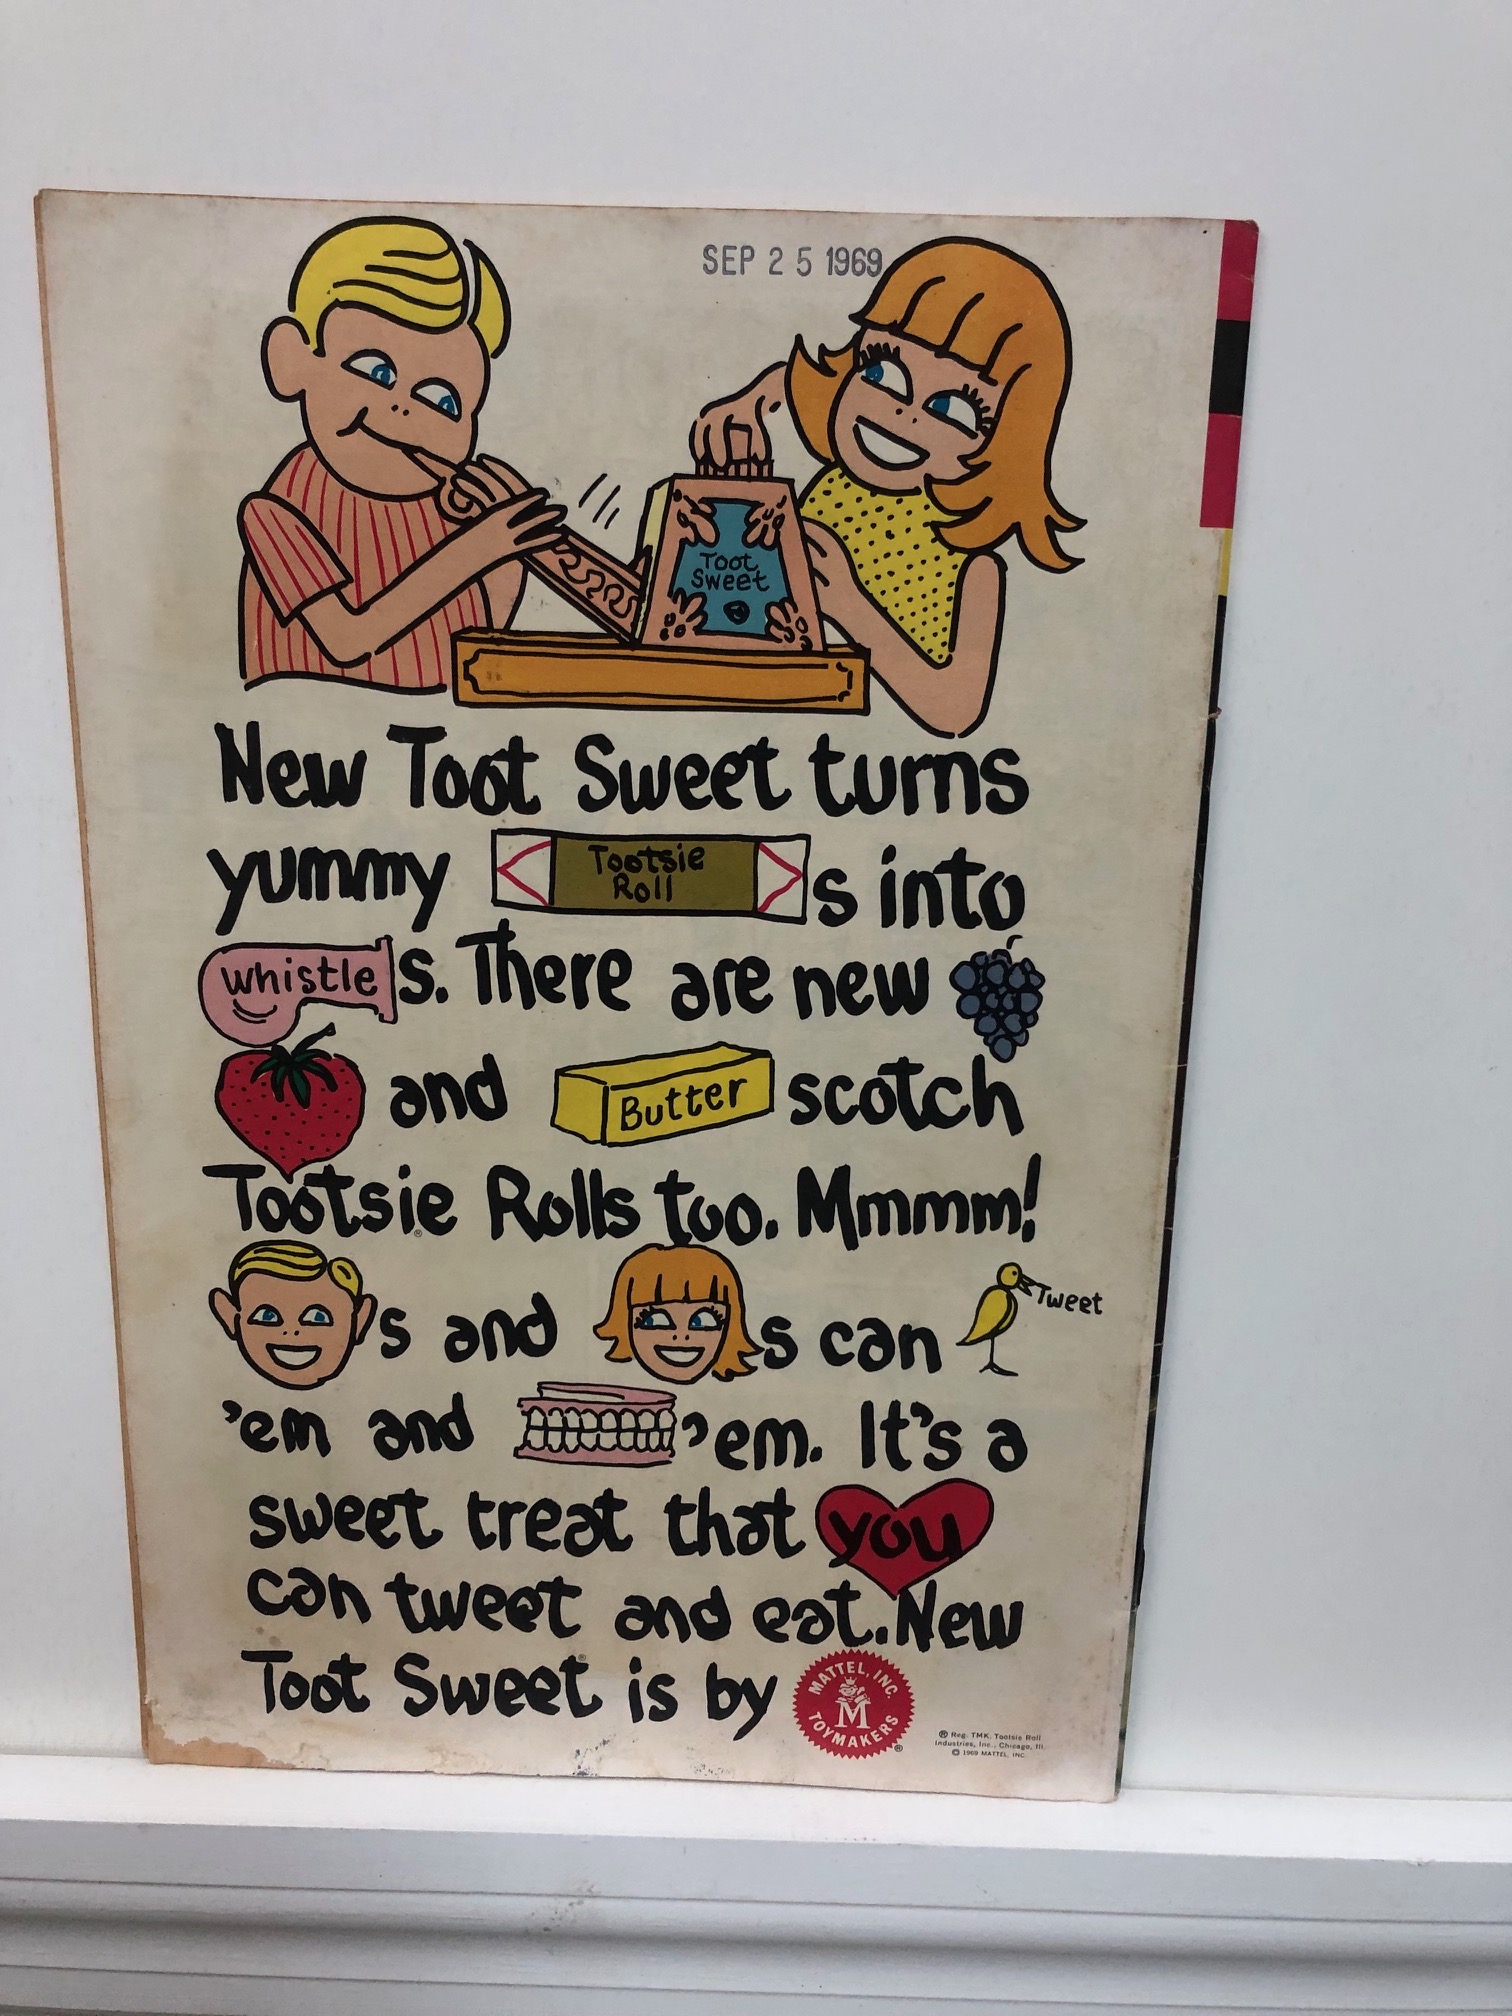 SEP 25 1969
Toot
Sweet
New Toot Sweet turns
yummy Tootsie Roll s into
whistle s. There are new
and Butter scotch
Tootsie Rolls too. Mmmm!
s and s can Tweet
'em and 'em. It's a
sweet treat that you
can tweet and eat. New
Toot Sweet® is by MATTEL, INC. M TOYMAKERS ®
® Reg. TMK. Tootsie Roll
Industries, Inc., Chicago, Ill.
© 1969 MATTEL, INC.